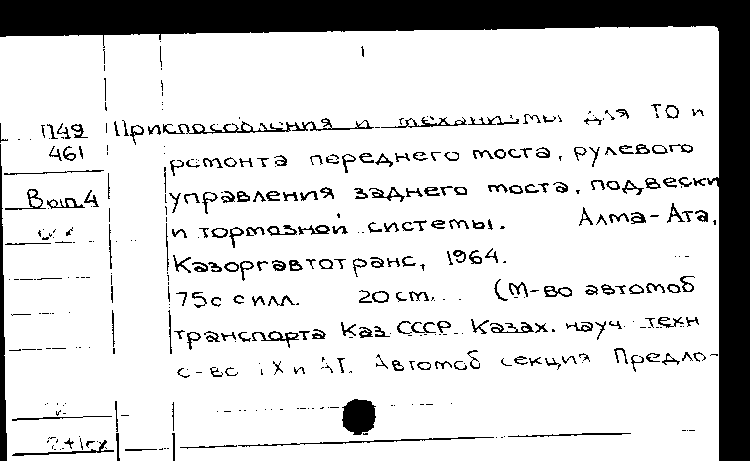 П49 Приспособления и механизмы для ТО и
461 ремонта переднего моста, рулевого
Вып.4 управления заднего моста, подвески
и тормозной системы. Алма-Ата,
Казоргавтотранс, 1964.
75с с илл. 20 cm. (М-во автомоб
транспорта Каз ССР. Казах. науч. техн
с-во Автомоб секция Предло-